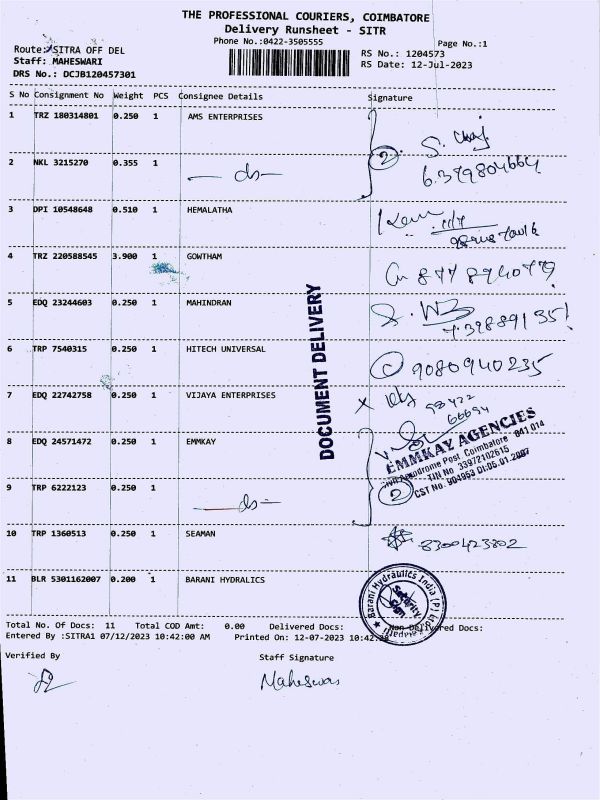 THE PROFESSIONAL COURIERS, COIMBATORE
Delivery Runsheet - SITR
Phone No.:0422-3505555
Page No.:1
Route: SITRA OFF DEL
RS No.: 1204573
Staff: MAHESWARI
RS Date: 12-Jul-2023
DRS No.: DCJB120457301
S No Consignment No Weight PCS Consignee Details Signature
1 TRZ 180314801 0.250 1 AMS ENTERPRISES
2 NKL 3215270 0.355 1 — ds —
②
3 DPI 10548648 0.510 1 HEMALATHA
4 TRZ 220588545 3.900 1 GOWTHAM
5 EDQ 23244603 0.250 1 MAHINDRAN
6 TRP 7540315 0.250 1 HITECH UNIVERSAL 9080940235
7 EDQ 22742758 0.250 1 VIJAYA ENTERPRISES
98422
66694
DOCUMENT DELIVERY
8 EDQ 24571472 0.250 1 EMMKAY
EMMKAY AGENCIES
Aerodrome Post Coimbatore 641 014
TIN No 33972102615
CST No. 904953 Dt:05.01.2007
9 TRP 6222123 0.250 1 — ds —
②
10 TRP 1360513 0.250 1 SEAMAN 8300423802
11 BLR 5301162007 0.200 1 BARANI HYDRALICS
Barani Hydraulics India (P) Ltd
Security
Total No. Of Docs: 11 Total COD Amt: 0.00 Delivered Docs: Non Delivered Docs:
Entered By :SITRA1 07/12/2023 10:42:00 AM Printed On: 12-07-2023 10:42:
Verified By Staff Signature
Maheswari